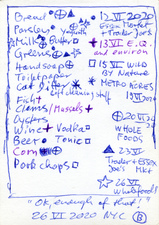 Bread
12 VI 2020
Essex Market
+ Trader Joe's
Parsley
yogurt
Milk
Butter
13 VI E.Q.
and environ
Greens
Handsoap
15 VI Wild
By Nature
Toilet paper
Cat Litter
Metro Acres
13 VI 2020
Fish
Clams/Mussels
Oysters
Wine + Vodka
20 VI 2020
Whole
Foods
Beer + Tonic
Corn
23 VI
Trader + Essex
Joe's Mkt
Pork chops
26 VI
Whole Foods
"Ok, enough of that!"
26 VI 2020 NYC